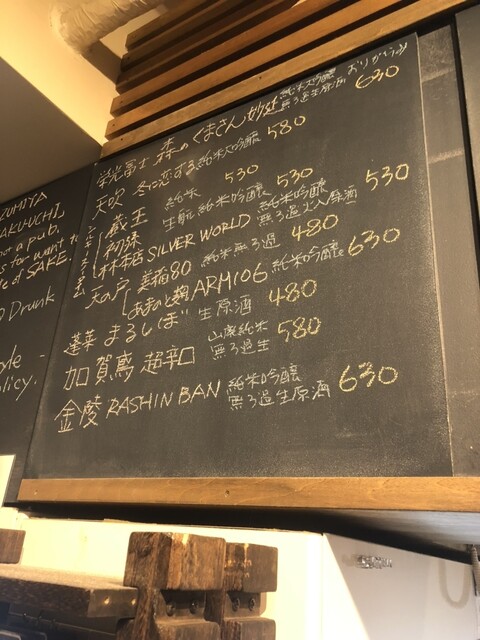 栄光冨士 森のくまさん 妙延 純米大吟醸 無ろ過生原酒 おりがらみ 630
天吹 冬に恋する 純米大吟醸 580
蔵王 純米 530
初孫 生酛 純米吟醸 530
SILVER WORLD 純米吟醸 無ろ過火入原酒 530
天の戸 美稲80 純米無ろ過 480
あまのと麹 ARM106 純米吟醸 630
蓬莱 まるしぼ 生原酒 480
加賀鳶 超辛口 山廃純米 無ろ過生 580
金陵 RASHIN BAN 純米吟醸 無ろ過生原酒 630
UMIYA
AKU-UCHI
not a pub.
s for want to
e of SAKE.
Drunk
olicy.